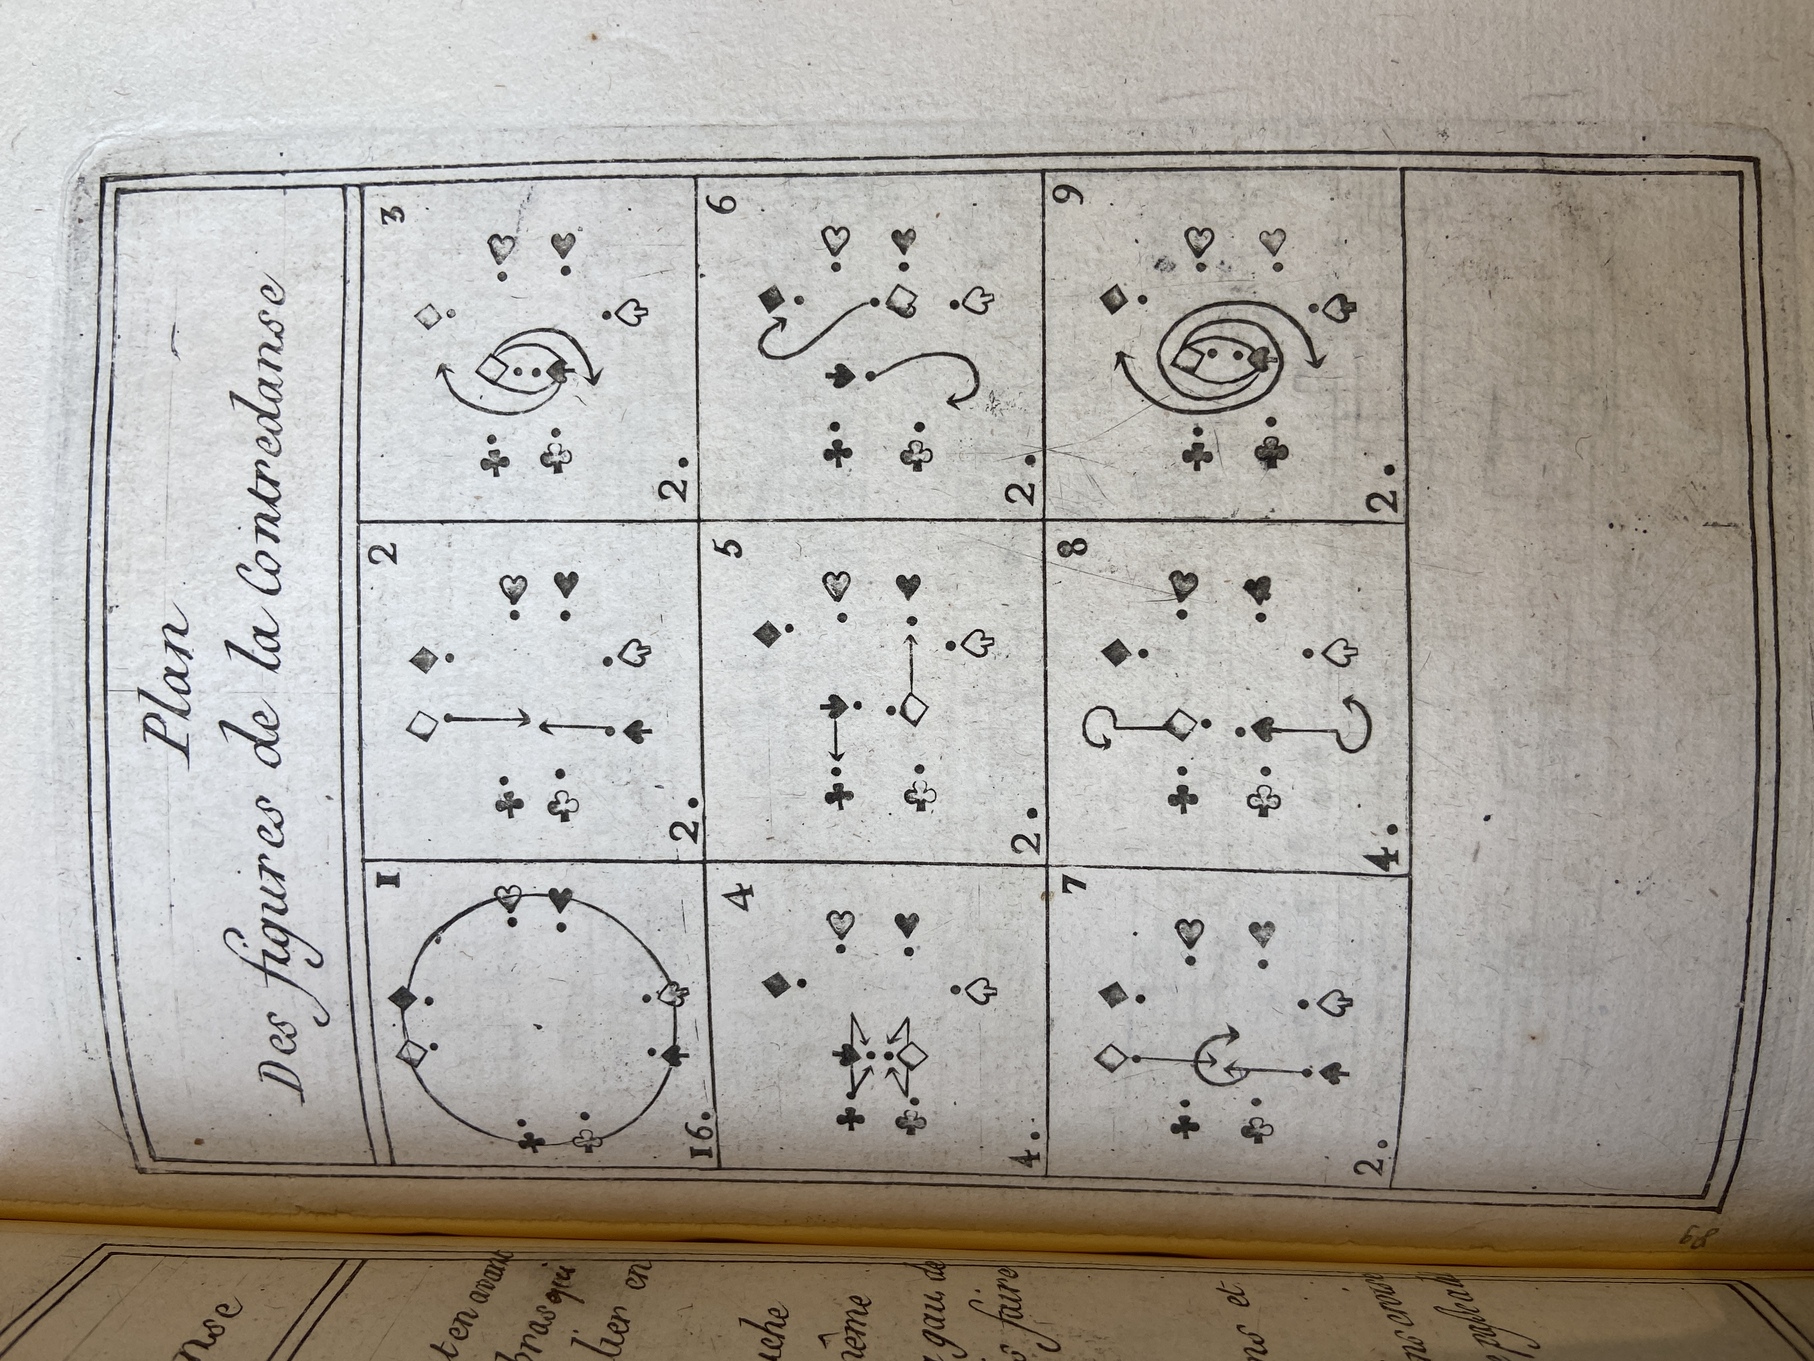 Plan
Des figures de la Contredanse
1
2
3
16.
2.
2.
4
5
6
4.
2.
2.
7
8
9
2.
4.
2.
68
nse
t en avant
bras qui
lier en
uche
même
gau. de
s faire
ns et